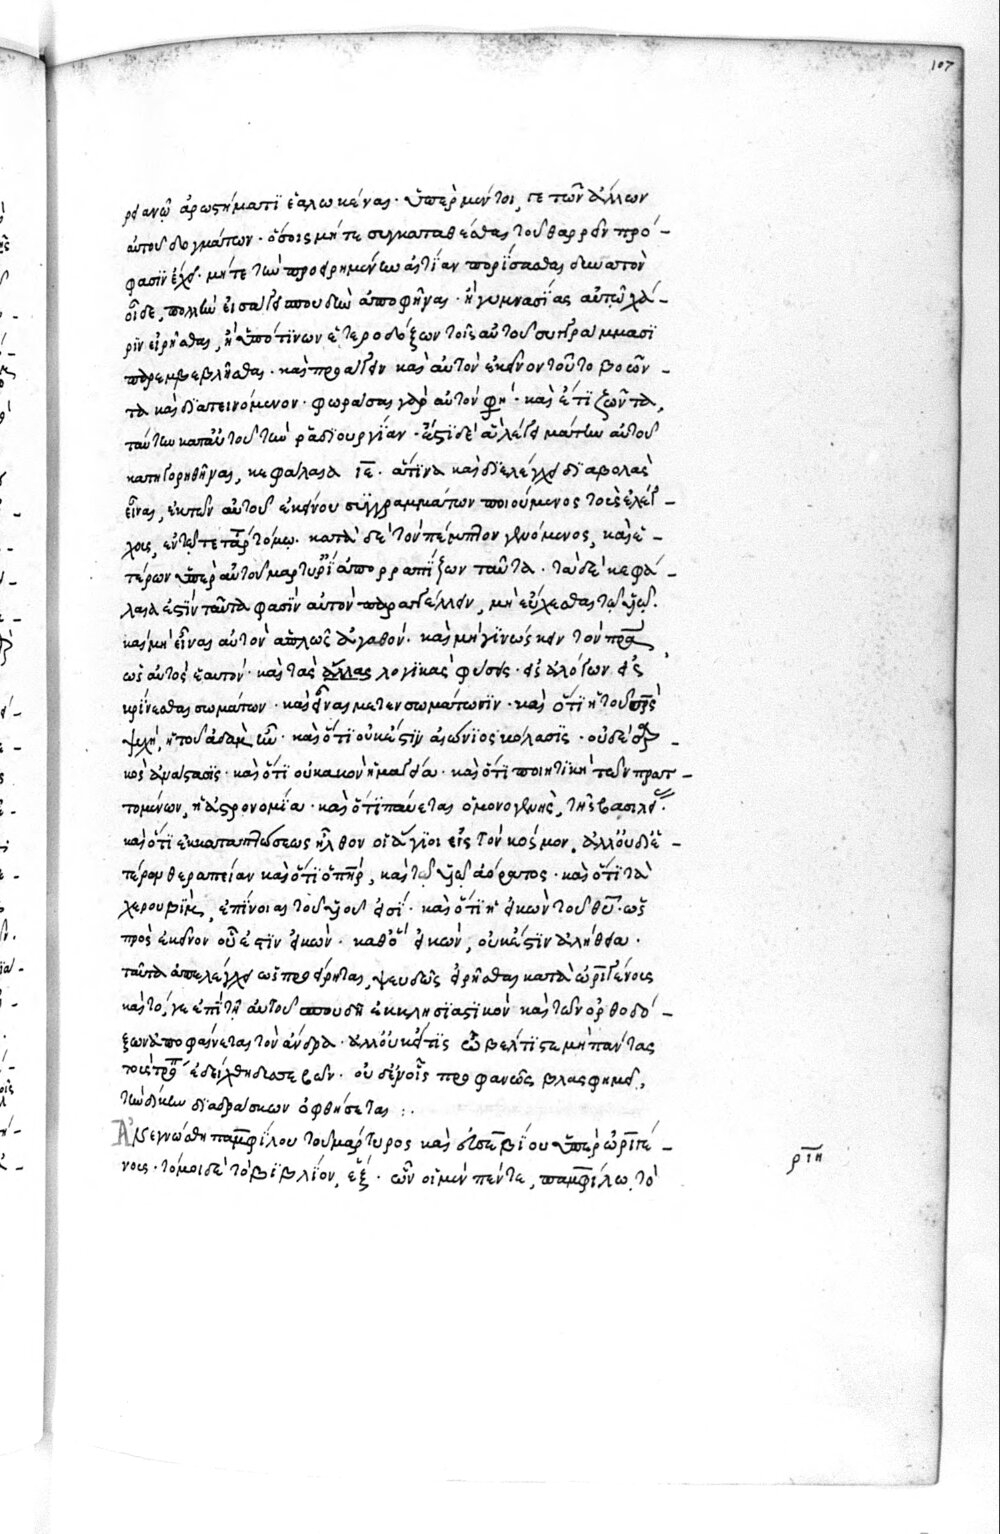 107
ρείανῷ ἀρωστήματι ἑαλωκέναι· ὑπὲρ μέντοι γε τῶν ἄλλων
αὐτοῦ δογμάτων· ὅσοις μήτε συγκαταθέσθαι τοῦ θαρρεῖν πρό-
φασιν ἔχει· μήτε τῶν προειρημένων αἰτίαν πορίσασθαι δυνατὸν
οἶδε, πολλὴν εἰσάγει σπουδὴν ἀποφῆναι· ἢ γυμνασίας αὐτῷ χά-
ριν εἰρῆσθαι, ἢ ὑπό τινων ἑτεροδόξων τοῖς αὐτοῦ συγγράμμασι
παρεμβεβλῆσθαι· καὶ προάγειν καὶ αὐτὸν ἐκεῖνον τοῦτο βοῶν-
τα καὶ διατεινόμενον· φωράσας γὰρ αὐτόν φη· καὶ ἔτι ζῶντα,
ταύτην κατ' αὐτοῦ τὴν ῥαδιουργίαν· ἔστι δὲ ἃ λέγει μάτην αὐτοῦ
κατηγορηθῆναι, κεφάλαια ιε. ἅτινα καὶ διελέγχει διαβολὰς
εἶναι, ἐκ τῶν αὐτοῦ ἐκείνου συγγραμμάτων ποιούμενος τοὺς ἐλέγ-
χους, ἐν τῷ τετάρτῳ τόμῳ. κατὰ δὲ τὸν πέμπτον γενόμενος, καὶ ἑ-
τέρων ὑπὲρ αὐτοῦ μαρτυρία ἀπορραπίζων ταῦτα· τὰ δὲ κεφά-
λαια ἐστὶν ταῦτα φασὶν αὐτὸν παραγγέλλειν, μὴ εὔχεσθαι τῷ υἱῷ.
καὶ μὴ εἶναι αὐτὸν ἁπλῶς ἀγαθόν· καὶ μὴ γινώσκειν τὸν πρα
ὡς αὐτὸς ἑαυτόν· καὶ τὰς ἄλλας λογικὰς φύσεις· εἰς ἀλόγων εἰσ
κρίνεσθαι σωμάτων· καὶ εἶναι μετενσωμάτωσιν· καὶ ὅτι ἡ τοῦ σρς
ψυχή, ἡ τοῦ ἀδὰμ ἦν· καὶ ὅτι οὐκ ἔστιν αἰώνιος κόλασις· οὐδὲ σαρ-
κὸς ἀνάστασις· καὶ ὅτι οὐ κακὸν ἡ μαγεία· καὶ ὅτι ποιητικὴ τῶν πρατ-
τομένων, ἡ ἀστρονομία· καὶ ὅτι παύεται ὁ μονογενὴς, τῆς βασιλεί·
καὶ ὅτι ἐκ καταπτώσεως ἦλθον οἱ ἅγιοι εἰς τὸν κόσμον, ἀλλ' οὐδὲ ἑ-
τέρων θεραπείαν καὶ ὅτι ὁ πηρ, καὶ τῷ υἱῷ ἀόρατος· καὶ ὅτι τὰ
χερουβὶμ, ἐπίνοιαι τοῦ υἱοῦ εἰσί· καὶ ὅτι ἡ εἰκὼν τοῦ θυ· ὡς
πρὸς ἐκεῖνον οὗ ἐστιν εἰκών· καθὸ εἰκών, οὐκ ἔστιν ἀλήθεια·
ταῦτα ἀπελέγχει ὡς προείρηται, ψευδῶς εἰρῆσθαι κατὰ ὠριγένους
καὶ τό, γε ἐπὶ τῇ αὐτοῦ σπουδῇ ἐκκλησιαστικὸν καὶ τῶν ὀρθοδό-
ξων ἀποφαίνεται τὸν ἄνδρα· ἀλλ' οὐκ εἴ τις ὦ βέλτιστε μὴ πάντας
τοὺς πρς ἐδείχθη διασεβῶν· οὐδ' ἐν οἷς προφανῶς βλασφημεῖ,
τὴν δίκην διαδράσκων ὀφθήσεται :.
Ἀνεγνώσθη παμφίλου τοῦ μάρτυρος καὶ εὐσεβίου ὑπὲρ ὠριγέ-
νους· τόμοι δὲ τὸ βιβλίον, ἕξ· ὧν οἱ μὲν πέντε, παμφίλω, τὸ
ριη